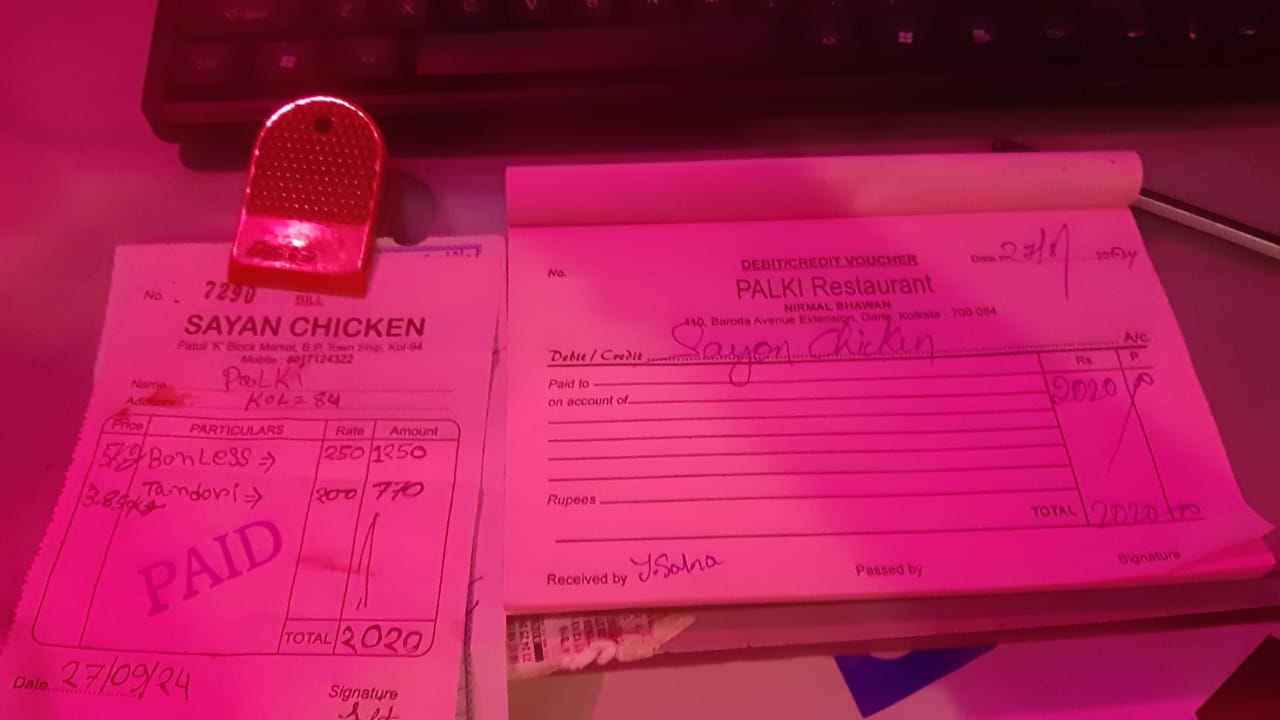 No. 7290 BILL
SAYAN CHICKEN
Patuli 'K' Block Market, B.P. Town Ship, Kol-94
Mobile : 8017124322
Name PALKI
Address KOL = 84
Price PARTICULARS Rate Amount
5kg BonLess → 250 1250
Tandori → 200 770
PAID
TOTAL 2020
Date 27/09/24
Signature
No. DEBIT/CREDIT VOUCHER Date 27/9/ 2024
PALKI Restaurant
NIRMAL BHAWAN
110, Baroda Avenue Extension, Garia, Kolkata - 700 084
Debit / Credit Sayan Chicken A/c.
Rs. P.
Paid to 2020 00
on account of
Rupees
TOTAL 2020 00
Received by Passed by Signature